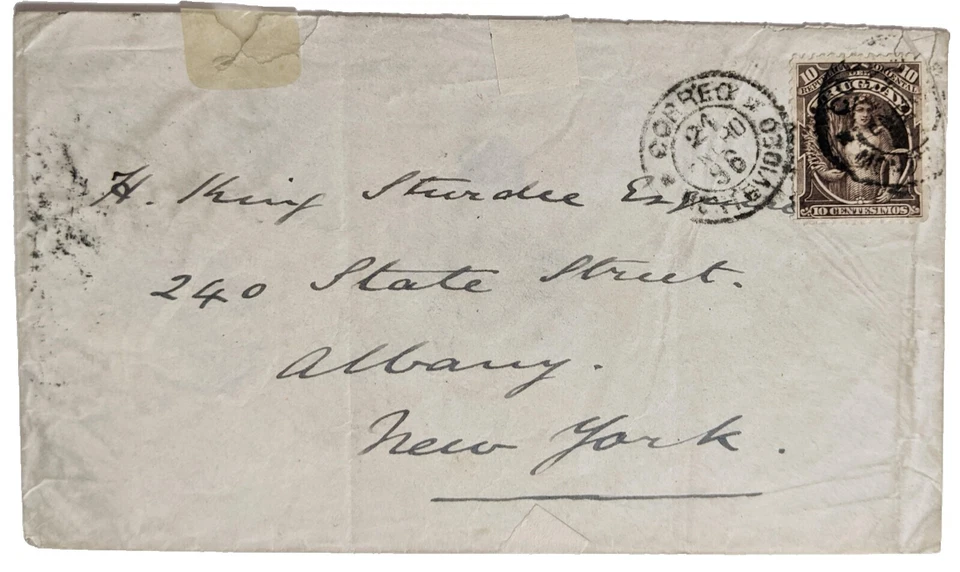 10 10
REPUBLICA ORIENTAL
DEL
URUGUAY
10 CENTESIMOS
CORREO
MONTEVIDEO
96
H. King Sturdee Esquire
240 State Street.
Albany.
New York.